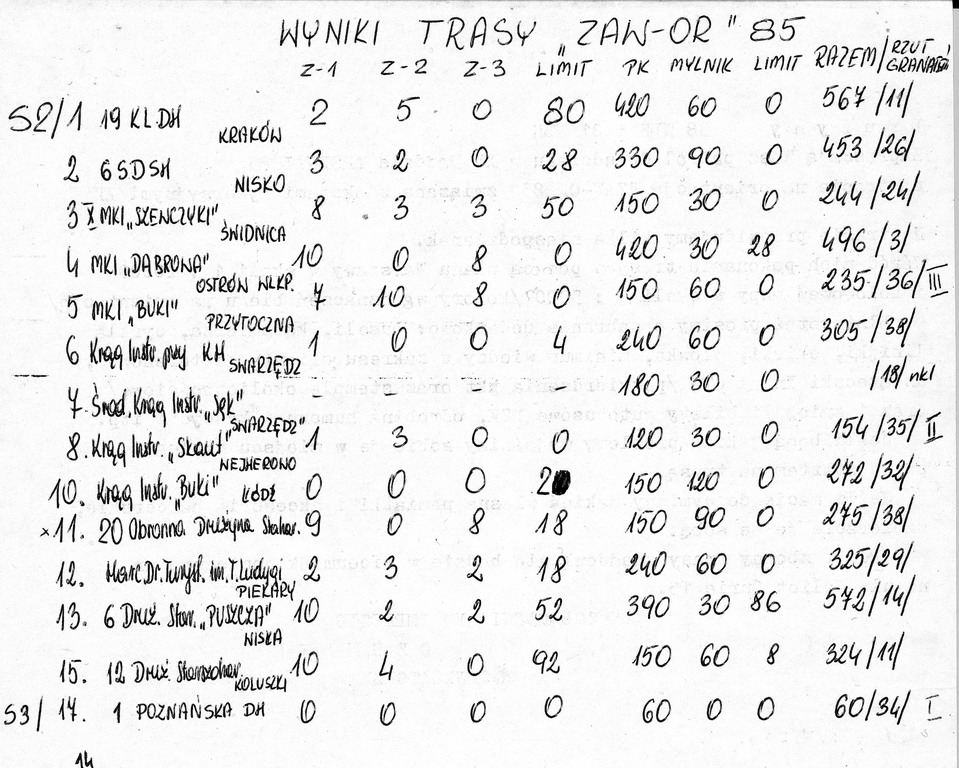 WYNIKI TRASY „ZAW-OR" 85
Z-1 Z-2 Z-3 LIMIT PK MYLNIK LIMIT RAZEM/RZUT GRANATEM/
S2/1 19 KLDH 2 5 0 80 420 60 0 567/11/
KRAKÓW
2 6SDSH 3 2 0 28 330 90 0 453/26/
NISKO
3 X MKI „SZENCZYKI" 8 3 3 50 150 30 0 244/24/
ŚWIDNICA
4 MKI „DĄBROWA" 10 0 8 0 420 30 28 496/3/
OSTRÓW WLKP.
5 MKI „BUKI" 7 10 8 0 150 60 0 235/36/ III
PRZYTOCZNA
6 Krąg Instr. przy KH 1 0 0 4 240 60 0 305/38/
SWARZĘDZ
7. Środ. Krąg Instr. „Sęk" - - - - 180 30 0 /18/ nkl
"SWARZĘDZ"
8. Krąg Instr. „Skaut" 1 3 0 0 120 30 0 154/35/ II
WEJHEROWO
10. Krąg Instr. „Buki" 0 0 0 2 150 120 0 272/32/
ŁÓDŹ
x11. 20 Obronna Drużyna Starhar. 9 0 8 18 150 90 0 275/38/
12. Harc. Dr. Turyst. im. T. Ludygi 2 3 2 18 240 60 0 325/29/
PIEKARY
13. 6 Druż. Star. „PUSZCZA" 10 2 2 52 390 30 86 572/14/
NISKA
15. 12 Druż. Starszohar. 10 4 0 92 150 60 8 324/11/
KOLUSZKI
S3/ 17. 1 POZNAŃSKA DH 0 0 0 0 60 0 0 60/34/ I
14